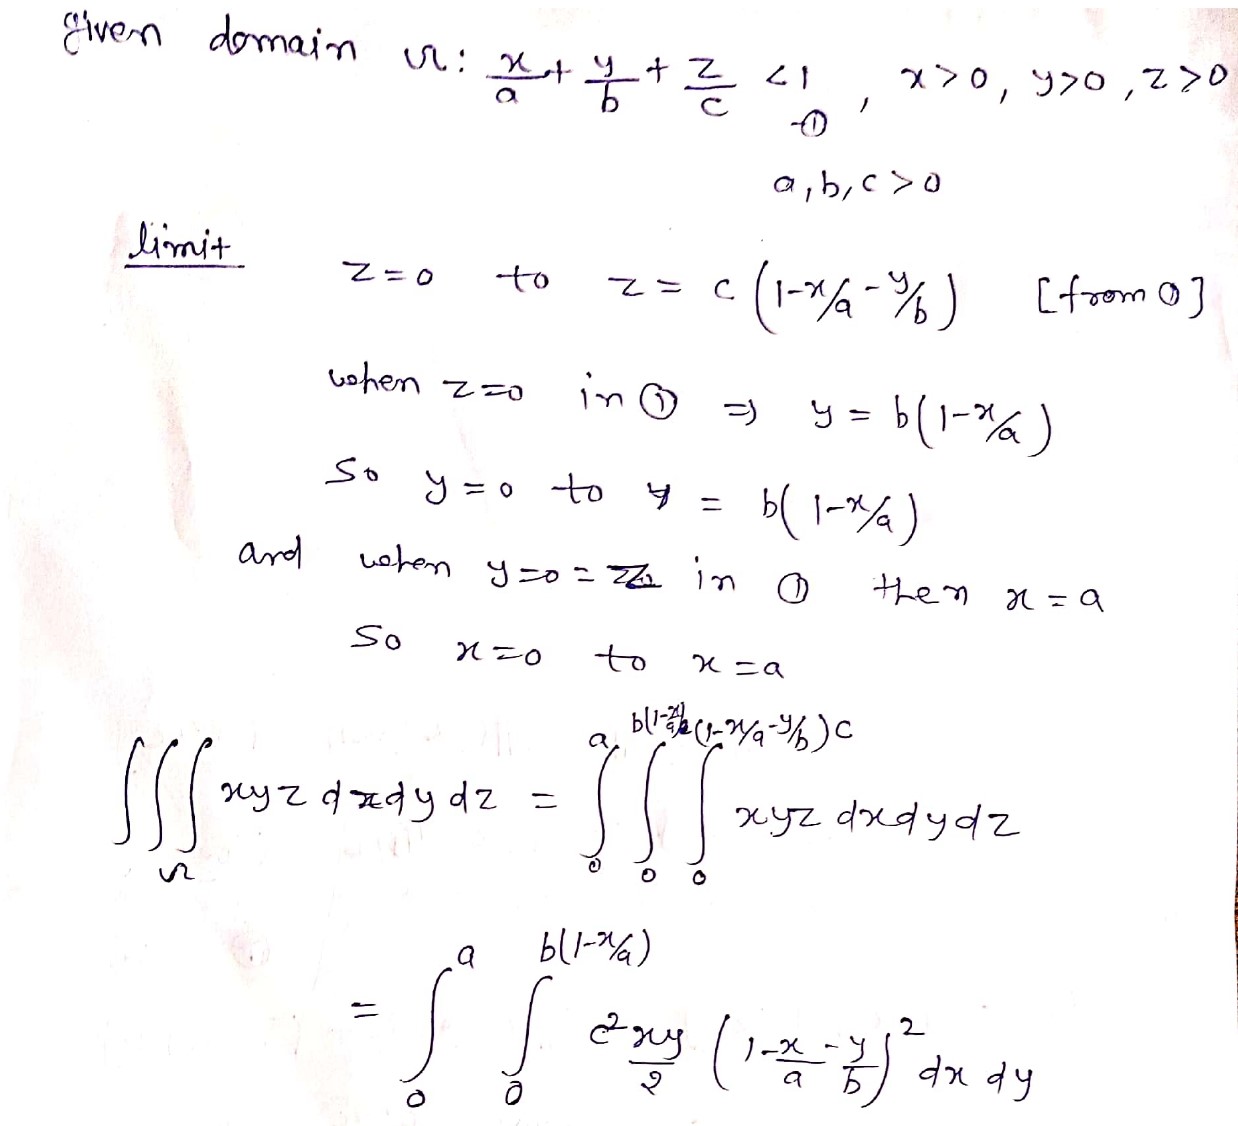 given domain Ω: x/a + y/b + z/c < 1 , x>0, y>0, z>0
-①
a,b,c >0
limit
z=0 to z = c (1-x/a-y/b) [from ①]
when z=0 in ① ⇒ y = b(1-x/a)
So y=0 to y = b(1-x/a)
and when y=0=z in ① then x=a
So x=0 to x=a
∭_Ω xyz dxdydz = ∫_0^a ∫_0^{b(1-x/a)} ∫_0^{(1-x/a-y/b)c} xyz dxdydz
= ∫_0^a ∫_0^{b(1-x/a)} c²xy/2 (1-x/a-y/b)² dx dy